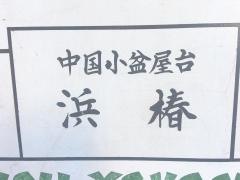 中国小盆屋台
浜 椿